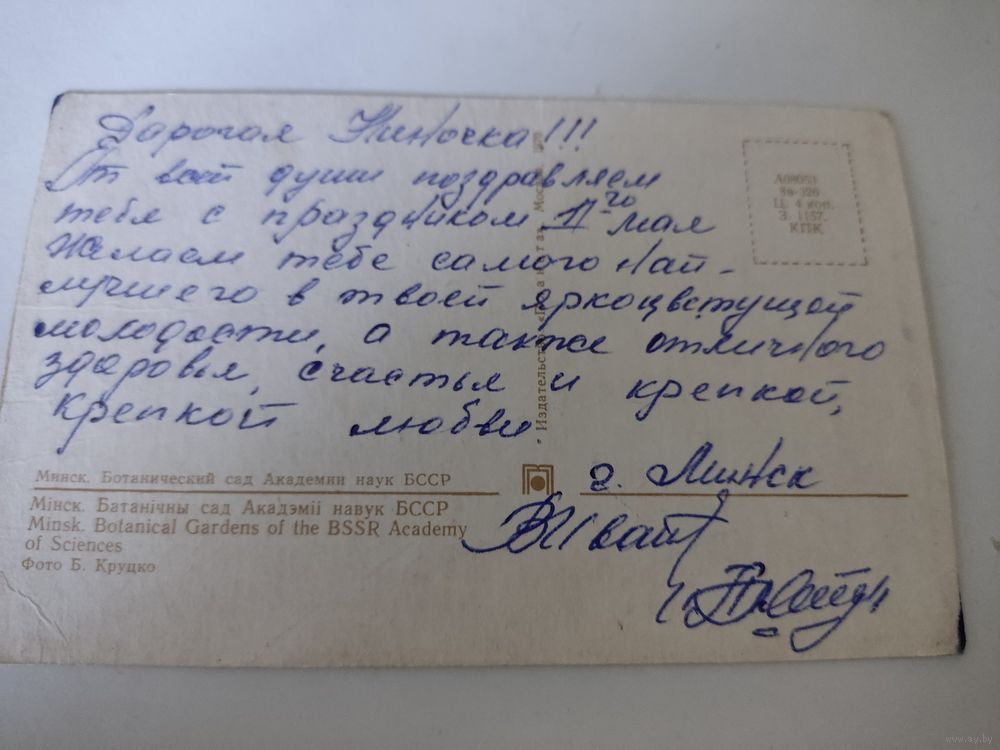 Дарогая Ниночка!!!
От всей души поздравляем
тебя с праздником 1го мая
Желаем тебе самого най-
лучшего в твоей яркоцветущей
молодости, а также отличного
здоровья, счастья и крепкой,
крепкой любви
г. Минск
А08051
Ц. 4 коп.
З. 1157.
КПК
Издательство «Планета». Москва 1970
Минск. Ботанический сад Академии наук БССР
Мінск. Батанічны сад Акадэміі навук БССР
Minsk. Botanical Gardens of the BSSR Academy
of Sciences
Фото Б. Круцко
www.ay.by